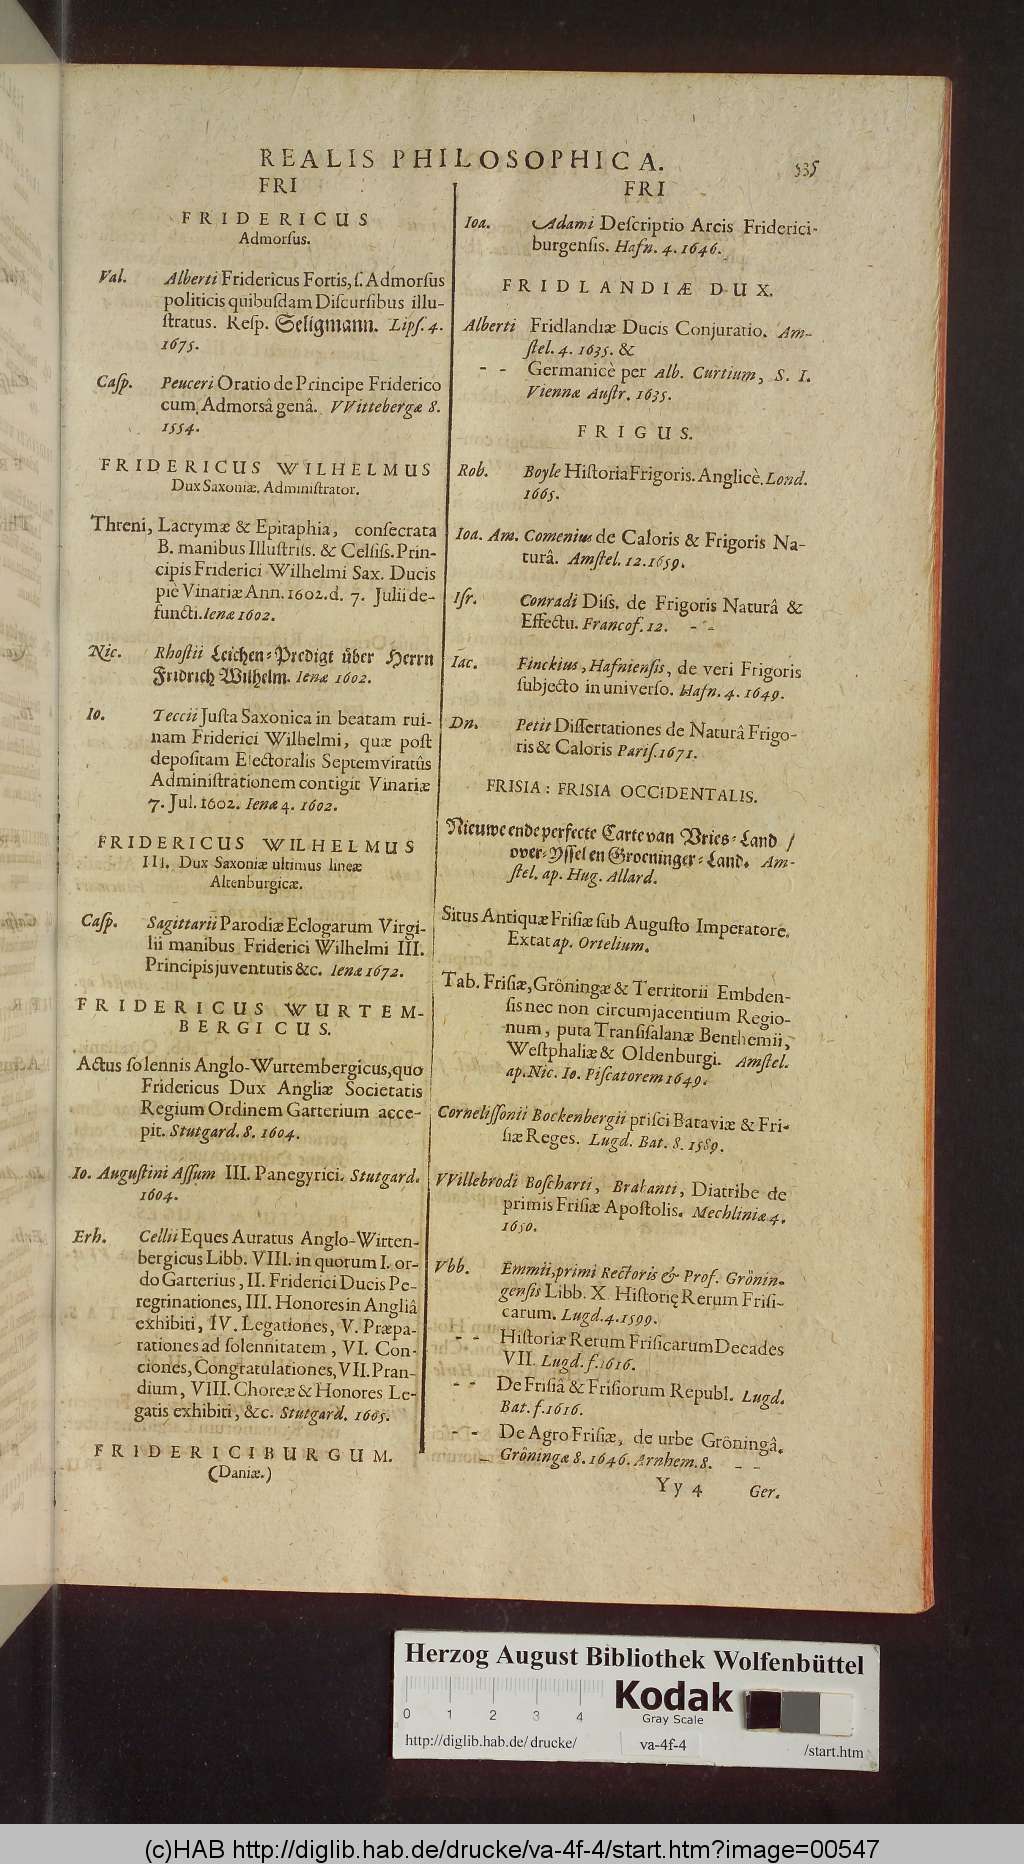 REALIS PHILOSOPHICA. 535
FRI
FRIDERICUS
Admorſus.
Val. Alberti Fridericus Fortis, ſ. Admorſus
politicis quibuſdam Diſcurſibus illu-
ſtratus. Reſp. Seligmann. Lipſ. 4.
1675.
Caſp. Peuceri Oratio de Principe Friderico
cum Admorsâ genâ. VVittebergæ 8.
1554.
FRIDERICUS WILHELMUS
Dux Saxoniæ, Adminiſtrator.
Threni, Lacrymæ & Epitaphia, conſecrata
B. manibus Illuſtriſs. & Celſiſs. Prin-
cipis Friderici Wilhelmi Sax. Ducis
piè Vinariæ Ann. 1602. d. 7. Julii de-
functi. Ienæ 1602.
Nic. Rhoſtii Leichen-Predigt über Herrn
Fridrich Wilhelm. Ienæ 1602.
Io. Teccii Juſta Saxonica in beatam rui-
nam Friderici Wilhelmi, quæ poſt
depoſitam Electoralis Septemviratûs
Adminiſtrationem contigit Vinariæ
7. Jul. 1602. Ienæ 4. 1602.
FRIDERICUS WILHELMUS
III. Dux Saxoniæ ultimus lineæ
Altenburgicæ.
Caſp. Sagittarii Parodiæ Eclogarum Virgi-
lii manibus Friderici Wilhelmi III.
Principis juventutis &c. Ienæ 1672.
FRIDERICUS WURTEM-
BERGICUS.
Actus ſolennis Anglo-Wurtembergicus, quo
Fridericus Dux Angliæ Societatis
Regium Ordinem Garterium acce-
pit. Stutgard. 8. 1604.
Io. Auguſtini Aſſum III. Panegyrici. Stutgard.
1604.
Erh. Cellii Eques Auratus Anglo-Wirten-
bergicus Libb. VIII. in quorum I. or-
do Garterius, II. Friderici Ducis Pe-
regrinationes, III. Honores in Angliâ
exhibiti, IV. Legationes, V. Præpa-
rationes ad ſolennitatem, VI. Con-
ciones, Congratulationes, VII. Pran-
dium, VIII. Choreæ & Honores Le-
gatis exhibiti, &c. Stutgard. 1605.
FRIDERICIBURGUM.
(Daniæ.)
FRI
Ioa. Adami Deſcriptio Arcis Friderici-
burgenſis. Hafn. 4. 1646.
FRIDLANDIÆ DUX.
Alberti Fridlandiæ Ducis Conjuratio. Am-
ſtel. 4. 1635. &
- - Germanicè per Alb. Curtium, S. I.
Viennæ Auſtr. 1635.
FRIGUS.
Rob. Boyle Hiſtoria Frigoris. Anglicè. Lond.
1665.
Ioa. Am. Comenius de Caloris & Frigoris Na-
turâ. Amſtel. 12. 1659.
Iſr. Conradi Diſs. de Frigoris Naturâ &
Effectu. Francof. 12. - -
Iac. Finckius, Hafnienſis, de veri Frigoris
ſubjecto in univerſo. Hafn. 4. 1649.
Dn. Petit Diſſertationes de Naturâ Frigo-
ris & Caloris Pariſ. 1671.
FRISIA: FRISIA OCCIDENTALIS.
Nieuwe ende perfecte Carte van Vries-Land /
over-Yſſel en Groeninger-Land. Am-
ſtel. ap. Hug. Allard.
Situs Antiquæ Friſiæ ſub Auguſto Imperatore.
Extat ap. Ortelium.
Tab. Friſiæ, Grôningæ & Territorii Embden-
ſis nec non circumjacentium Regio-
num, puta Tranſiſalanæ Benthemii,
Weſtphaliæ & Oldenburgi. Amſtel.
ap. Nic. Io. Piſcatorem 1649.
Corneliſſonii Bockenbergii priſci Bataviæ & Fri-
ſiæ Reges. Lugd. Bat. 8. 1589.
VVillebrodi Boſcharti, Brabanti, Diatribe de
primis Friſiæ Apoſtolis. Mechliniæ 4.
1650.
Vbb. Emmii, primi Rectoris & Prof. Grönin-
genſis Libb. X. Hiſtorię Rerum Friſi-
carum. Lugd. 4. 1599.
- - Hiſtoriæ Rerum Friſicarum Decades
VII. Lugd. f. 1616.
- - De Friſiâ & Friſiorum Republ. Lugd.
Bat. f. 1616.
- - De Agro Friſiæ, de urbe Grôningâ.
Grôningæ 8. 1646. Arnhem. 8. - -
Yy 4 Ger.
Herzog August Bibliothek Wolfenbüttel
0 1 2 3 4
Kodak
Gray Scale
http://diglib.hab.de/drucke/ va-4f-4 /start.htm
(c)HAB http://diglib.hab.de/drucke/va-4f-4/start.htm?image=00547